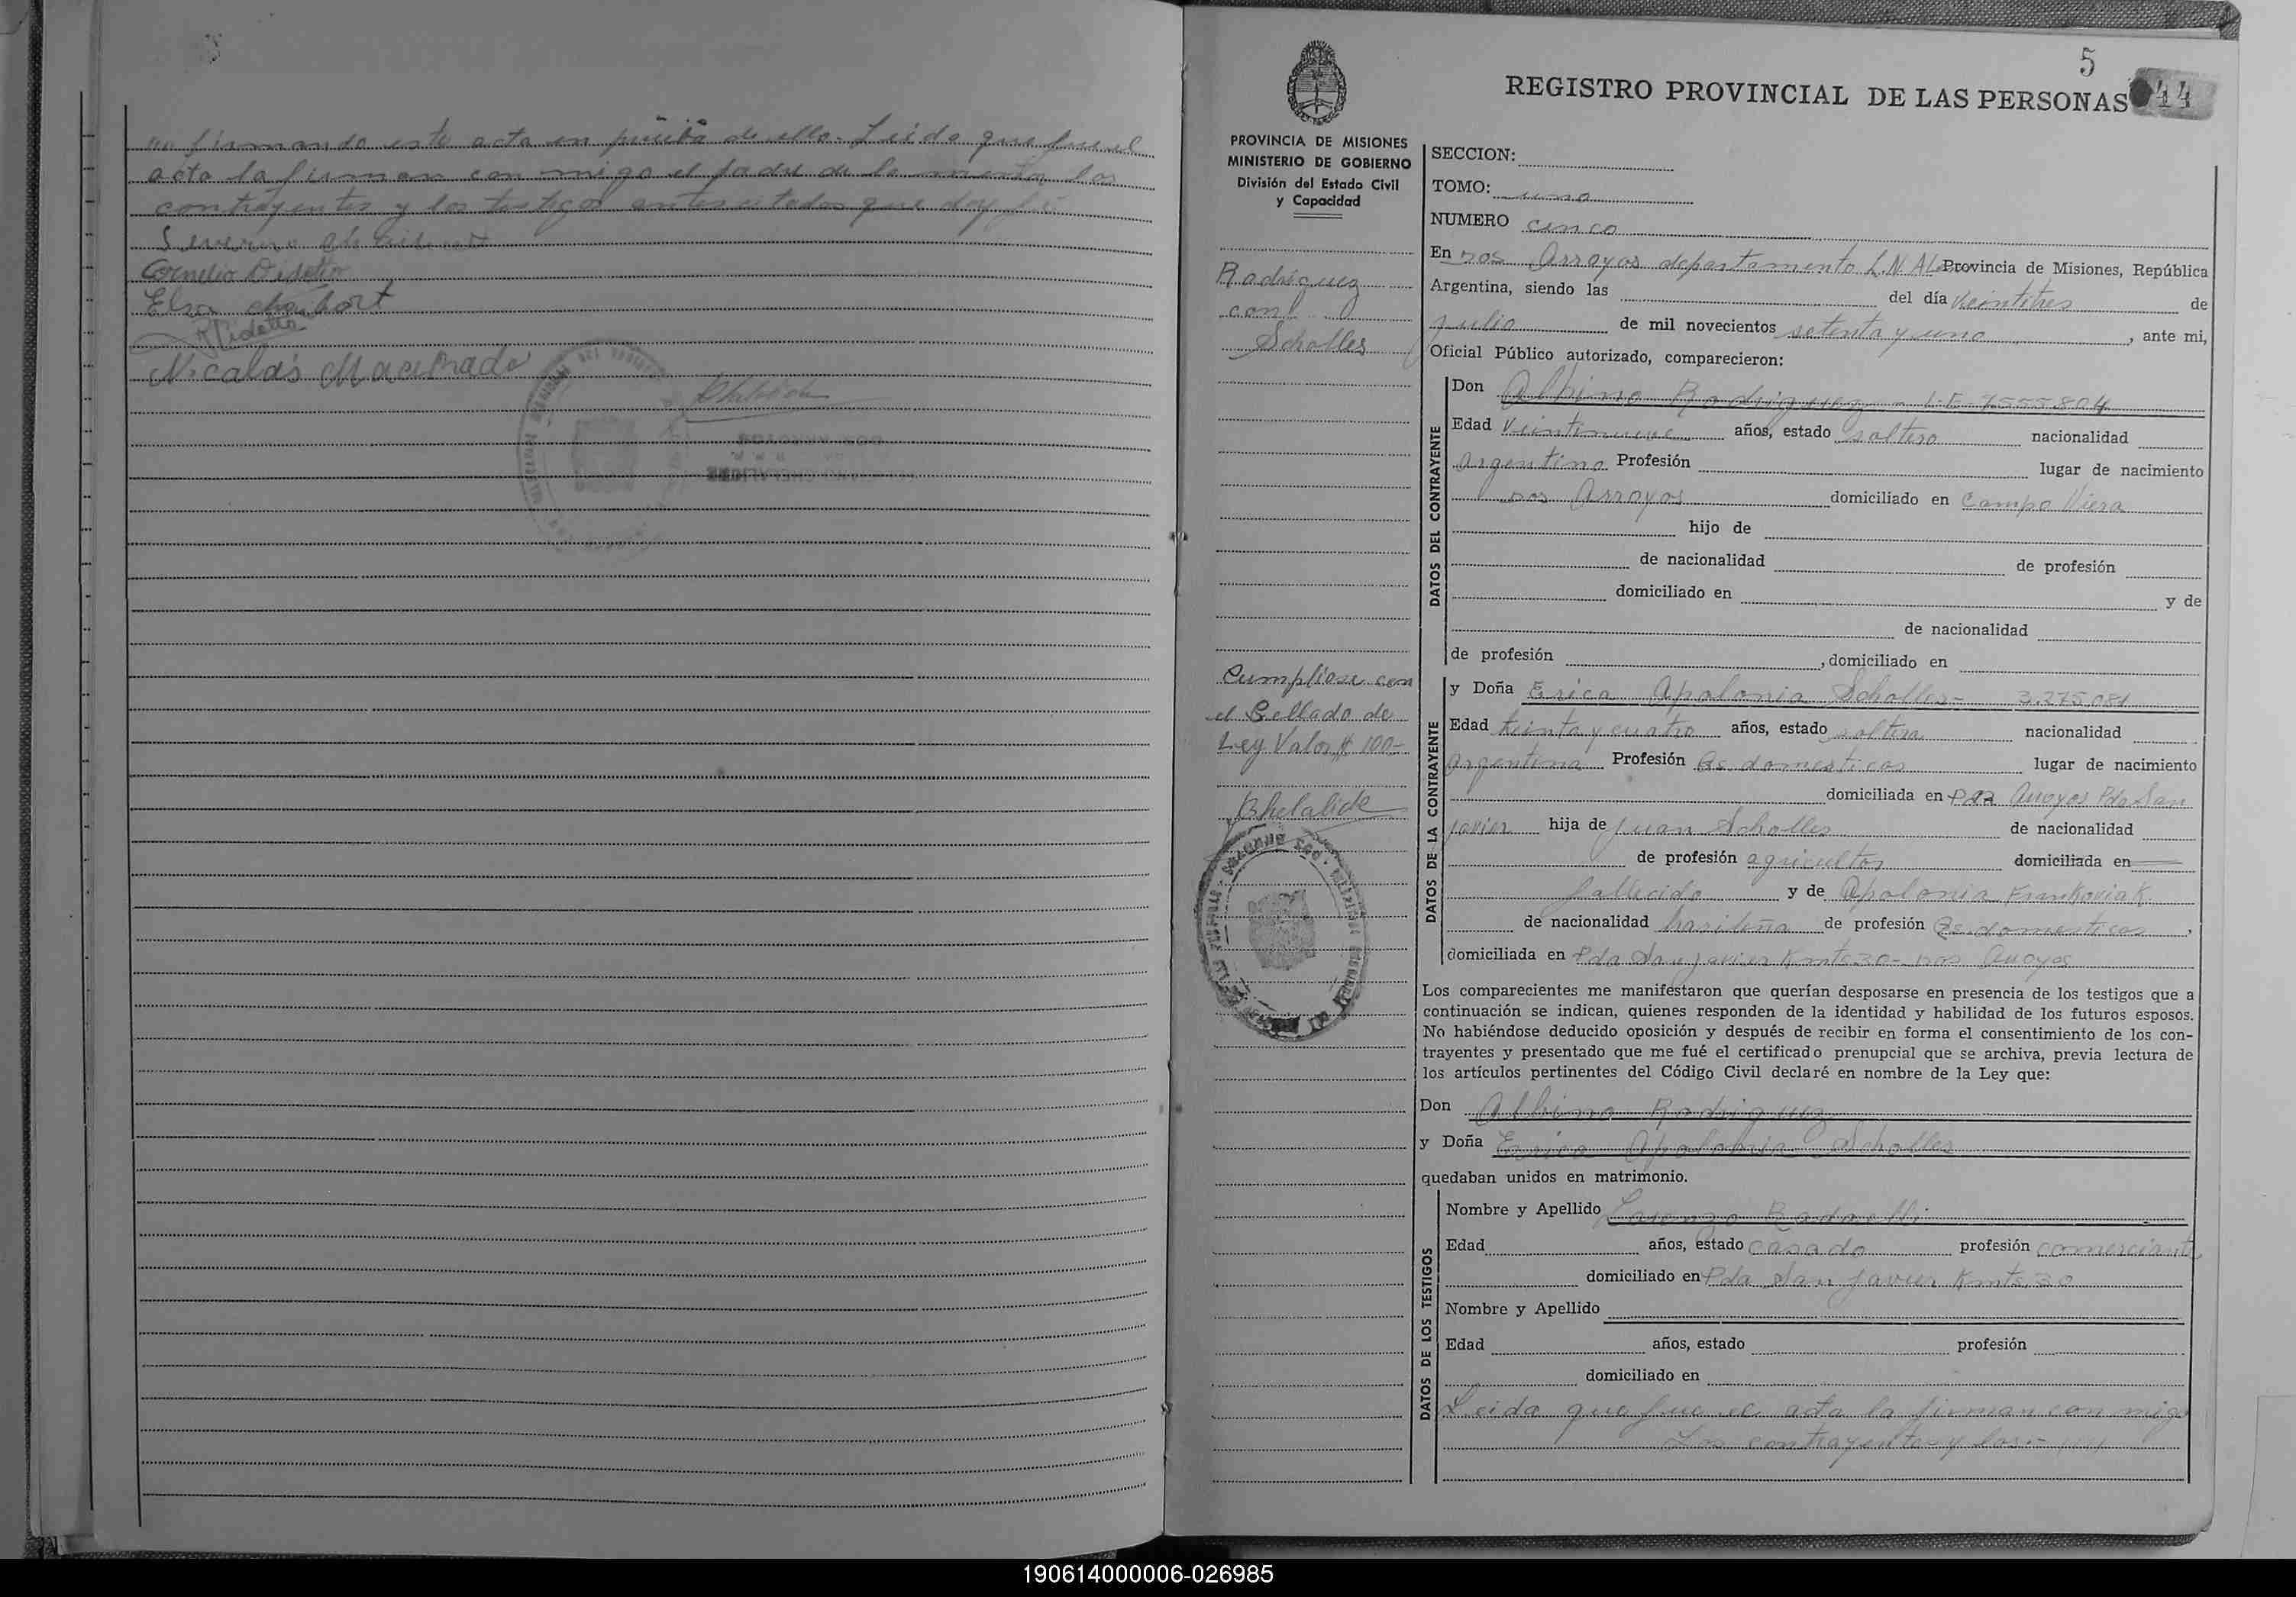 firmando este acta en prueba de ello. Leida que fue el
acta la firman con migo el padre de la menor los
contrayentes y los testigos antes citados que doy fé
Severino
Cornelio
Elsa
Nicalás
5
44
REGISTRO PROVINCIAL DE LAS PERSONAS
PROVINCIA DE MISIONES
MINISTERIO DE GOBIERNO
División del Estado Civil
y Capacidad
Rodriguez
con
Scholles
Cumpliose con
el Sellado de
Ley Valor $ 100-
SECCION:
TOMO: uno
NUMERO cinco
En Dos Arroyos departamento L.N.AL Provincia de Misiones, República
Argentina, siendo las del día Veintitres de
Julio de mil novecientos setenta y uno, ante mi,
Oficial Público autorizado, comparecieron:
DATOS DEL CONTRAYENTE
Don Albino Rodriguez - L.E. 7555804
Edad Veintinueve años, estado soltero nacionalidad
argentino Profesión lugar de nacimiento
Dos Arroyos domiciliado en Campo Viera
hijo de
de nacionalidad de profesión
domiciliado en y de
de nacionalidad
de profesión , domiciliado en
DATOS DE LA CONTRAYENTE
y Doña Erica Apolonia Scholles- 3.275.081
Edad treinta y cuatro años, estado soltera nacionalidad
argentina Profesión Qs. domesticos lugar de nacimiento
domiciliada en Arroyos Pda San
Javier hija de Juan Scholles de nacionalidad
de profesión agricultor domiciliada en
fallecido y de Apolonia Frankoviak
de nacionalidad brasileña de profesión Qs. domesticos,
domiciliada en Pda San Javier Kmts 30- Dos Arroyos
Los comparecientes me manifestaron que querían desposarse en presencia de los testigos que a
continuación se indican, quienes responden de la identidad y habilidad de los futuros esposos.
No habiéndose deducido oposición y después de recibir en forma el consentimiento de los con-
trayentes y presentado que me fué el certificado prenupcial que se archiva, previa lectura de
los artículos pertinentes del Código Civil declaré en nombre de la Ley que:
Don Albino Rodriguez
y Doña Erica Apolonia Scholles
quedaban unidos en matrimonio.
DATOS DE LOS TESTIGOS
Nombre y Apellido Lorenzo
Edad años, estado casado profesión comerciante
domiciliado en Pda San Javier Kmts 30
Nombre y Apellido
Edad años, estado profesión
domiciliado en
Leida que fue el acta la firman con migo
Los contrayentes y los-
190614000006-026985